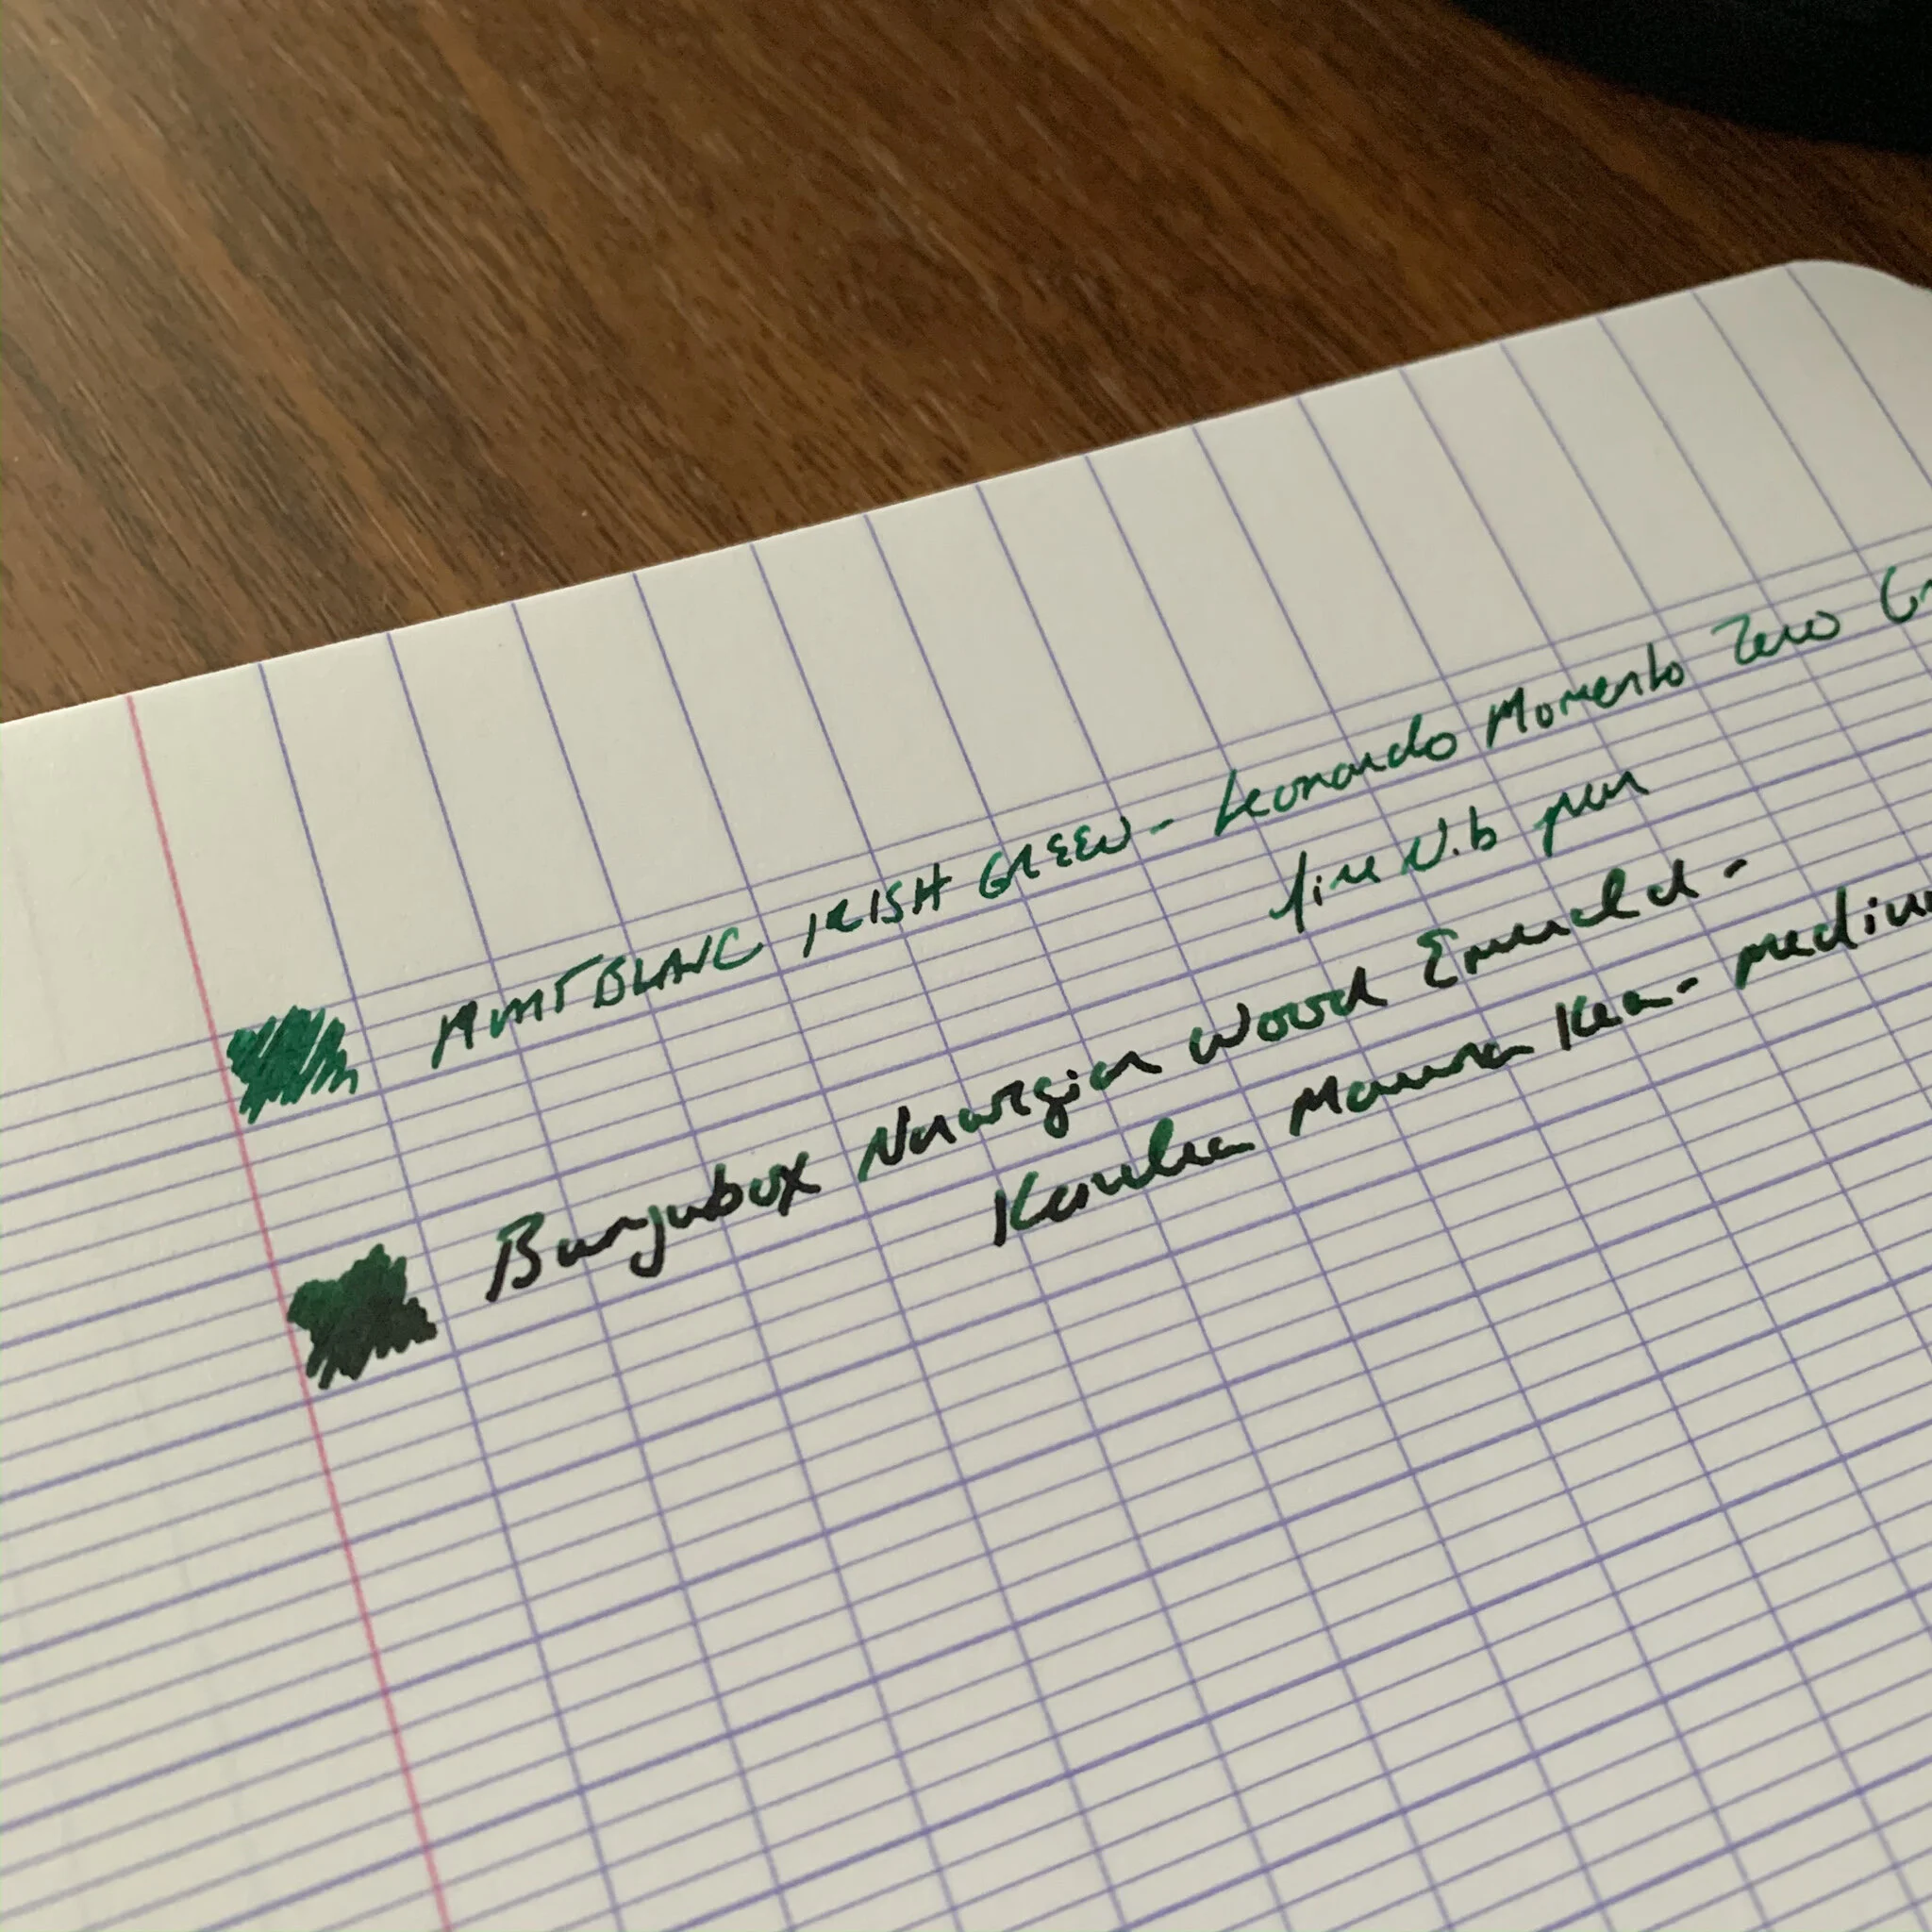 MONTBLANC IRISH GREEN - Leonardo Momento Zero
fine Nib pen
Bungubox Norwegian Wood Emerald -
Kanilea Mauna Kea - medium